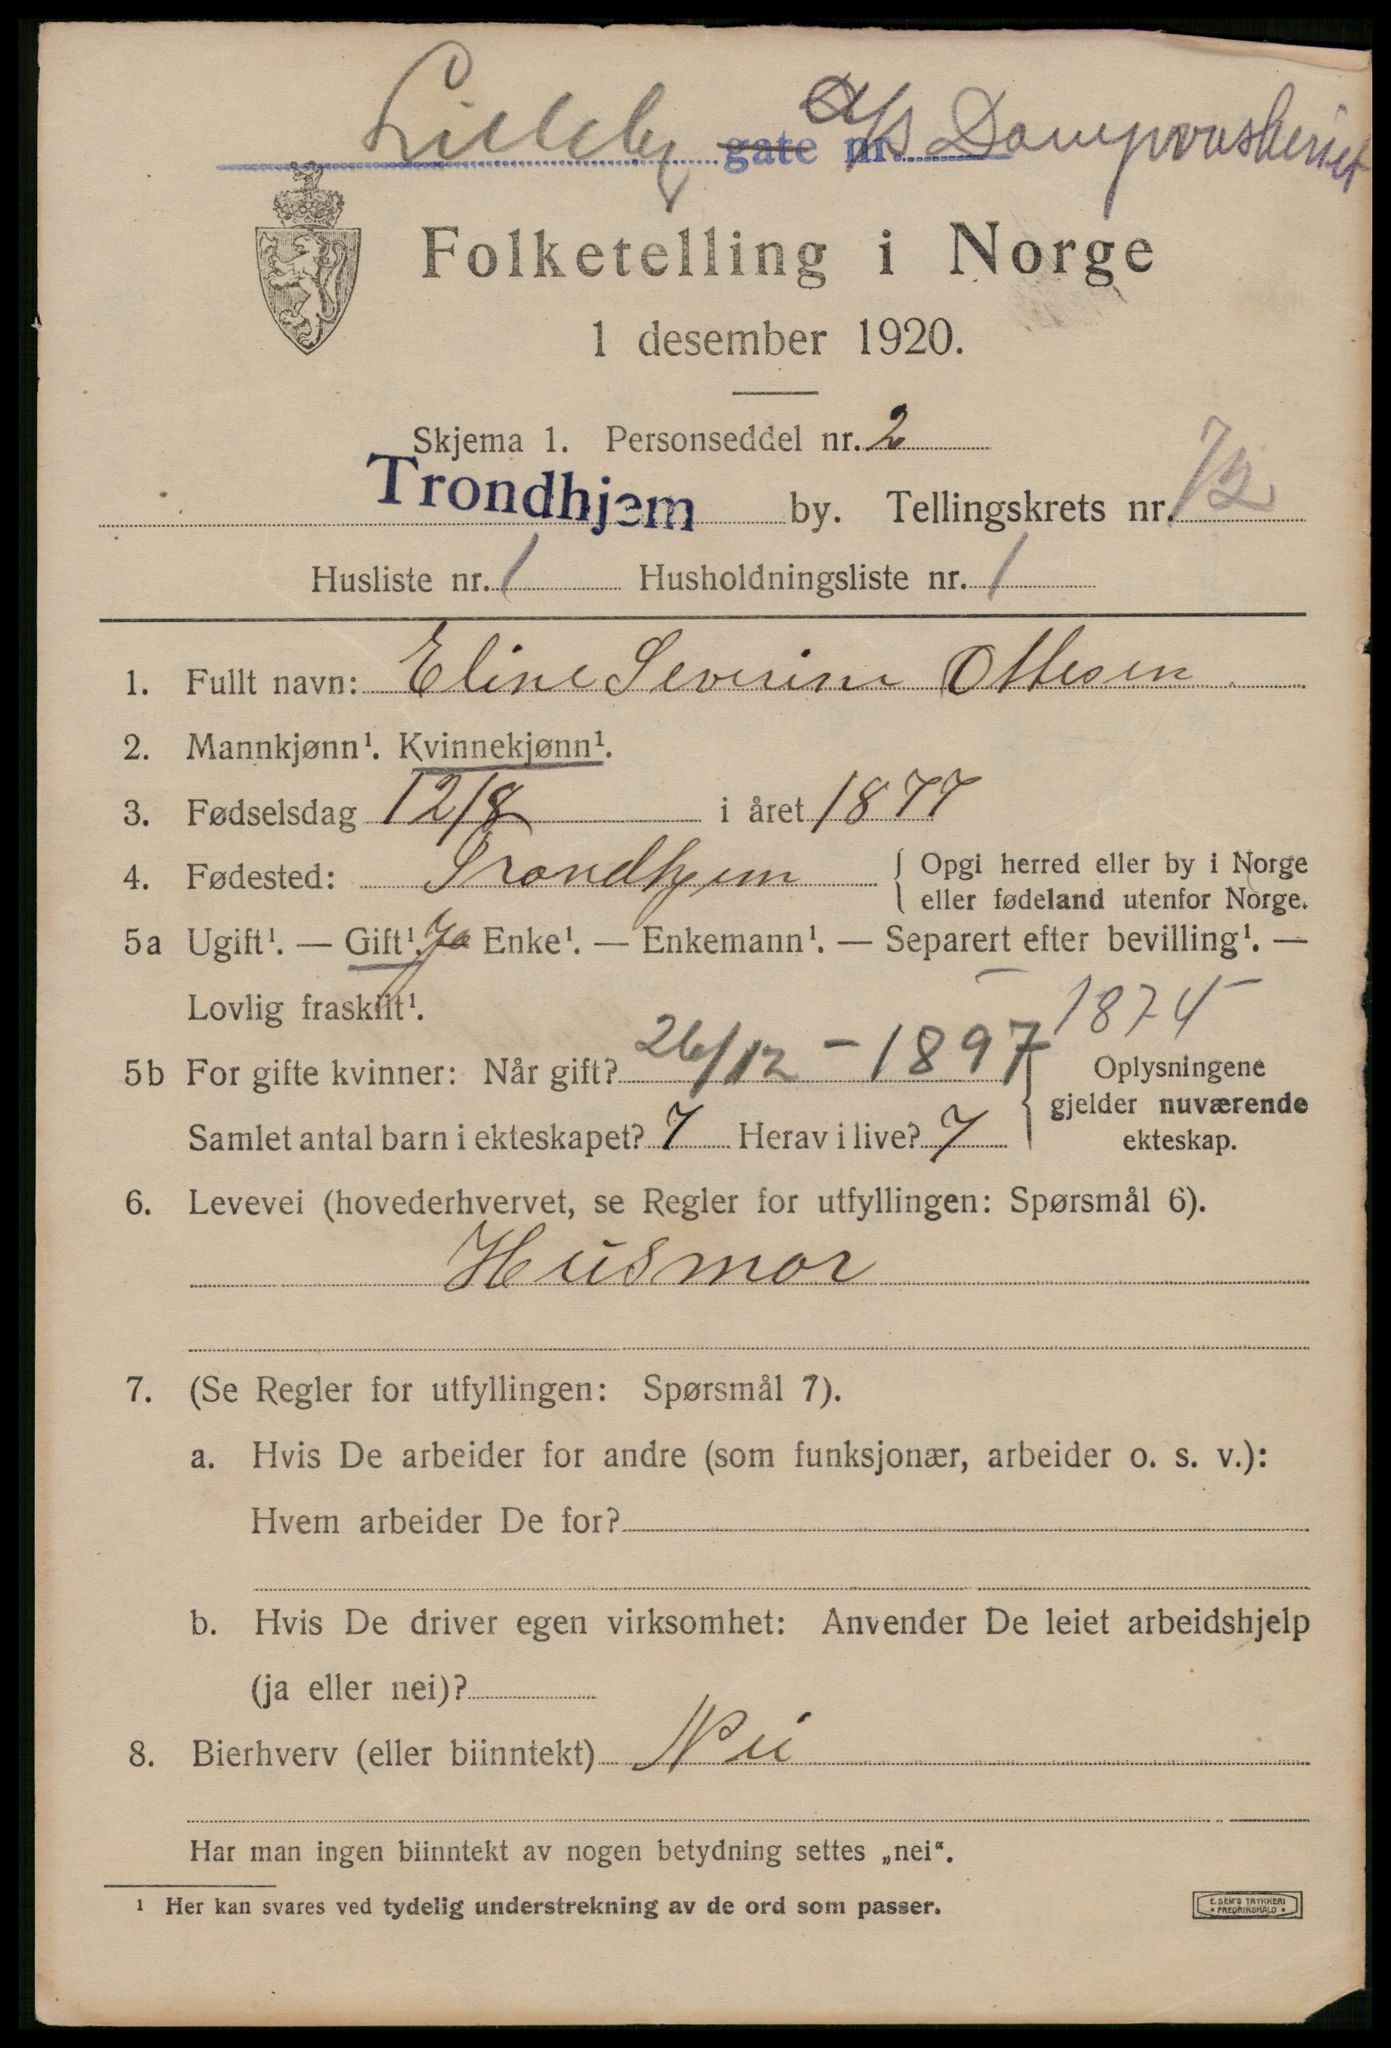 Lilleby gate nr. A/S Dampvaskeriet
Folketelling i Norge
1 desember 1920.
Skjema 1. Personseddel nr. 2
Trondhjem by. Tellingskrets nr. 72
Husliste nr. 1 Husholdningsliste nr. 1
1. Fullt navn: Eline Severine Ottesen
2. Mannkjønn¹. Kvinnekjønn¹.
3. Fødselsdag 12/8 i året 1877
4. Fødested: Trondhjem { Opgi herred eller by i Norge
eller fødeland utenfor Norge.
5a Ugift¹. — Gift¹. Ja Enke¹. — Enkemann¹. — Separert efter bevilling¹. —
Lovlig fraskilt¹.
1874
5b For gifte kvinner: Når gift? 26/12 - 1897 { Oplysningene
gjelder nuværende
ekteskap.
Samlet antal barn i ekteskapet? 7 Herav i live? 7
6. Levevei (hovederhvervet, se Regler for utfyllingen: Spørsmål 6).
Husmor
7. (Se Regler for utfyllingen: Spørsmål 7).
a. Hvis De arbeider for andre (som funksjonær, arbeider o. s. v.):
Hvem arbeider De for?
b. Hvis De driver egen virksomhet: Anvender De leiet arbeidshjelp
(ja eller nei)?
8. Bierhverv (eller biinntekt) Nei
Har man ingen biinntekt av nogen betydning settes „nei“.
¹ Her kan svares ved tydelig understrekning av de ord som passer.
E. SEM'S TRYKKERI
FREDRIKSHALD